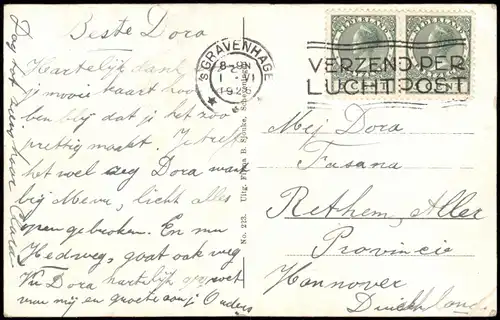 Beste Dora
Hartelijk dank
je mooie kaart hoor
ben blij dat je het zoo
prettig maakt. Je treft
het wel zeg Dora want
bij Mevr. licht alles
open gebroken. En nu
Hedweg, gaat ook weg
Nu Dora hartelijk gegroet
van mij en groete aan je Ouders
Dag hoor Clara
No. 213. Uitg. Firma B. Sjouke, Scheveningen
'SGRAVENHAGE
8-9 N
1
192
NEDERLAND NEDERLAND
VERZEND PER
LUCHTPOST
Mej Dora
Fasana
Rethem, Aller
Provincie
Hannover
Duitschland.